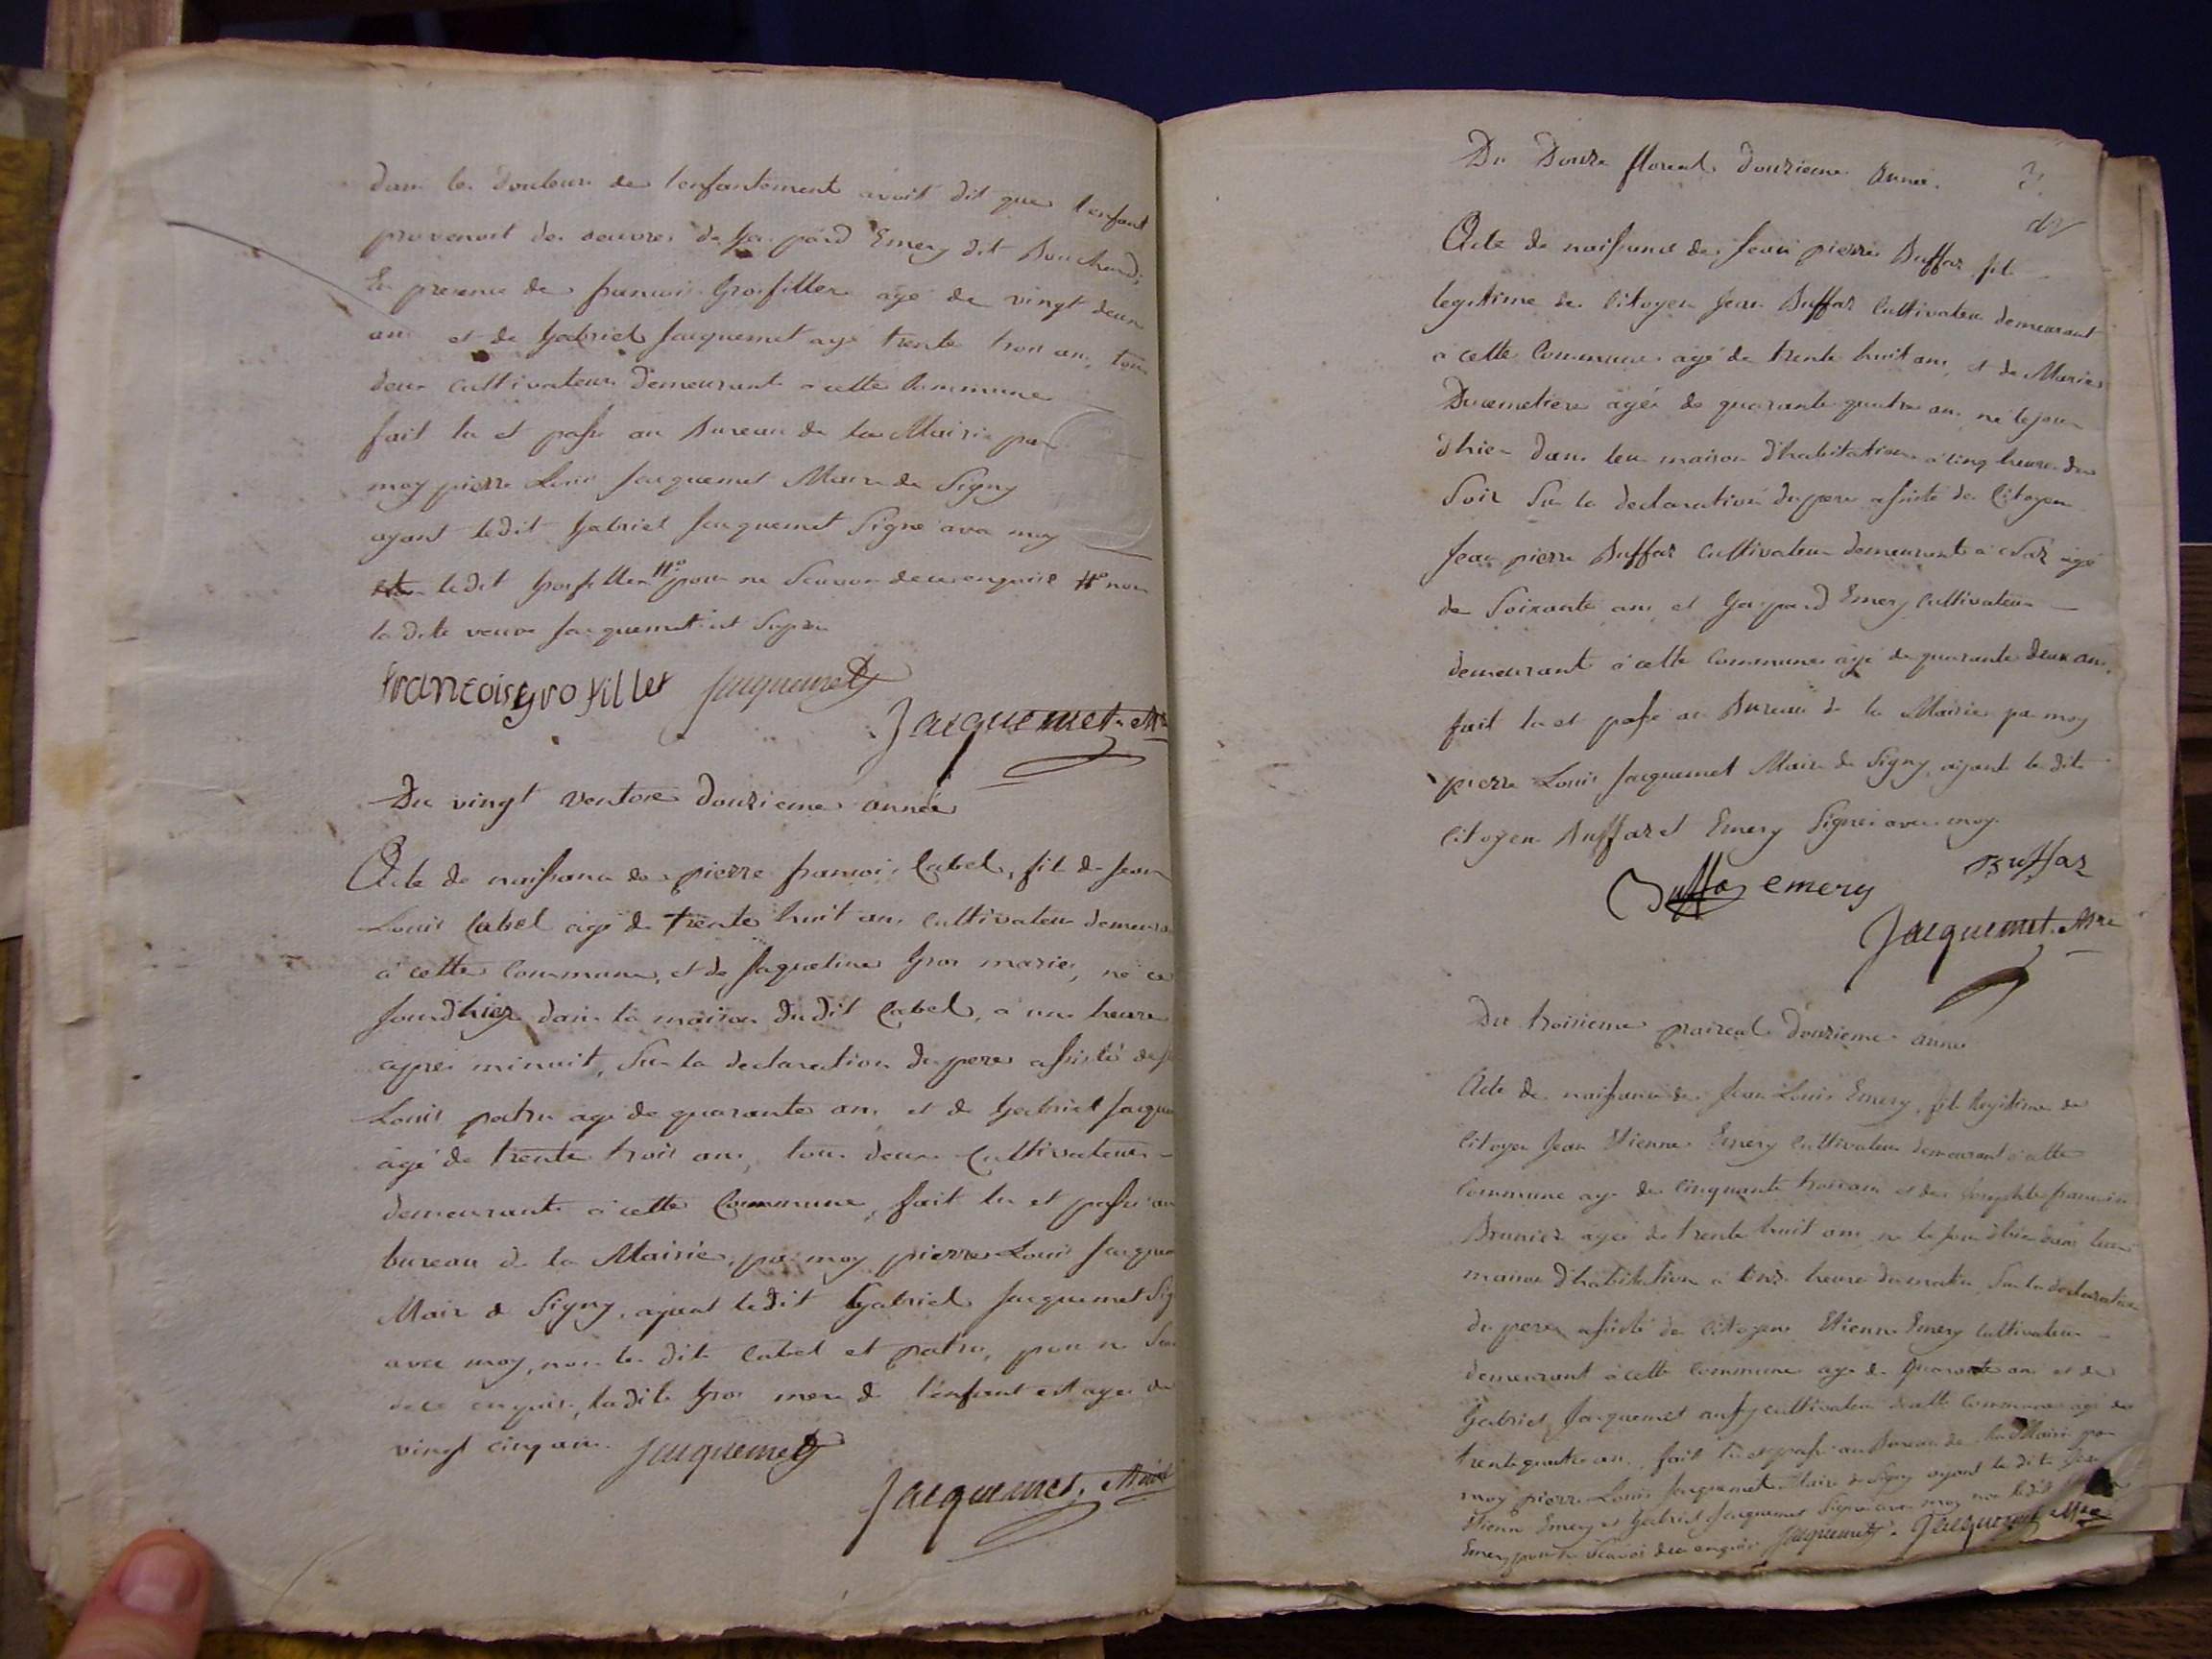 dans les douleurs de l'enfantement avoit dit que l'enfant
provenoit des oeuvres de Gaspard Emery dit
En presence de francois Grosfiller agé de vingt deux
ans et de Gabriel Jacquemet agé trente trois ans, tous
deux cultivateurs demeurants a cette Commune
fait lu et passé au Bureau de la Mairie par
moy pierre Louis Jacquemet Maire de Signy
ayant le dit Gabriel Jacquemet Signé avec moy
le dit Grosfiller pour ne Scavoir de ce enquis non
la dite veuve Jacquemet
francois gro filler Jacquemet
Jacquemet. Mre
Du vingt ventose douzieme année
Acte de naissance de pierre francois Cabel, fils de Jean
Louis Cabel agé de trente huit ans cultivateur demeura
à cette Commune, et de Jaqueline Gros mariés, né ce
jourdhier dans la maison du dit Cabel, à une heure
après minuit, Sur la declaration du pere assisté de
Louis patru agé de quarante ans et de Gabriel Jacque
agé de trente trois ans, tous deux Cultivateurs
demeurants à cette Commune, fait lu et passé au
bureau de la Mairie, par moy pierre Louis Jacquem
Maire de Signy, ayant le dit Gabriel Jacquemet Sig
avec moy, non les dits Cabel et patru, pour ne
de ce enquis, la dite Gros mere de l'enfant est agée de
vingt cinq ans. Jacquemet
Jacquemet, Maire
Du Douze floreal douzieme année.
Acte de naissance de Jean pierre Buffaz fils
legitime de Citoyen Jean Buffaz Cultivateur demeurant
à cette Commune agé de trente huit ans, et de Marie
Ducemetiere agée de quarante quatre ans né le jour
d'hier dans leur maison d'habitation à cinq heures du
Soir Sur la declaration du pere assisté des Citoyens
Jean pierre Buffaz Cultivateur demeurant à agé
de Soixante ans et Gaspard Emery Cultivateur
demeurant à cette Commune agé de quarante deux ans,
fait lu et passé au Bureau de la Mairie par moy
pierre Louis Jacquemet Maire de Signy, ayants les dits
Citoyens Buffaz et Emery Signés avec moy
Buffaz
Buffaz emery
Jacquemet. Mre
Du troisieme prairéal douzieme année
Acte de naissance de Jean Louis Emery, fils legitime de
Citoyen Jean Etienne Emery Cultivateur demeurant à cette
Commune agé de Cinquante trois ans et de francoise
Brunier agée de trente huit ans né le jour d'hier dans leur
maison d'habitation à onze heure du matin, Sur la declaration
du pere assisté des Citoyens Etienne Emery Cultivateur
demeurant à cette Commune agé de quarante ans et de
Gabriel Jacquemet aussy cultivateur à cette Commune agé de
trente quatre ans, fait lu et passé au Bureau de la Mairie par
moy pierre Louis Jacquemet Maire de Signy ayant les dits Jean
Etienne Emery et Gabriel Jacquemet Signé avec moy non le dit
Emery pour ne Scavoir de ce enquis Jacquemet. Jacquemet Mre